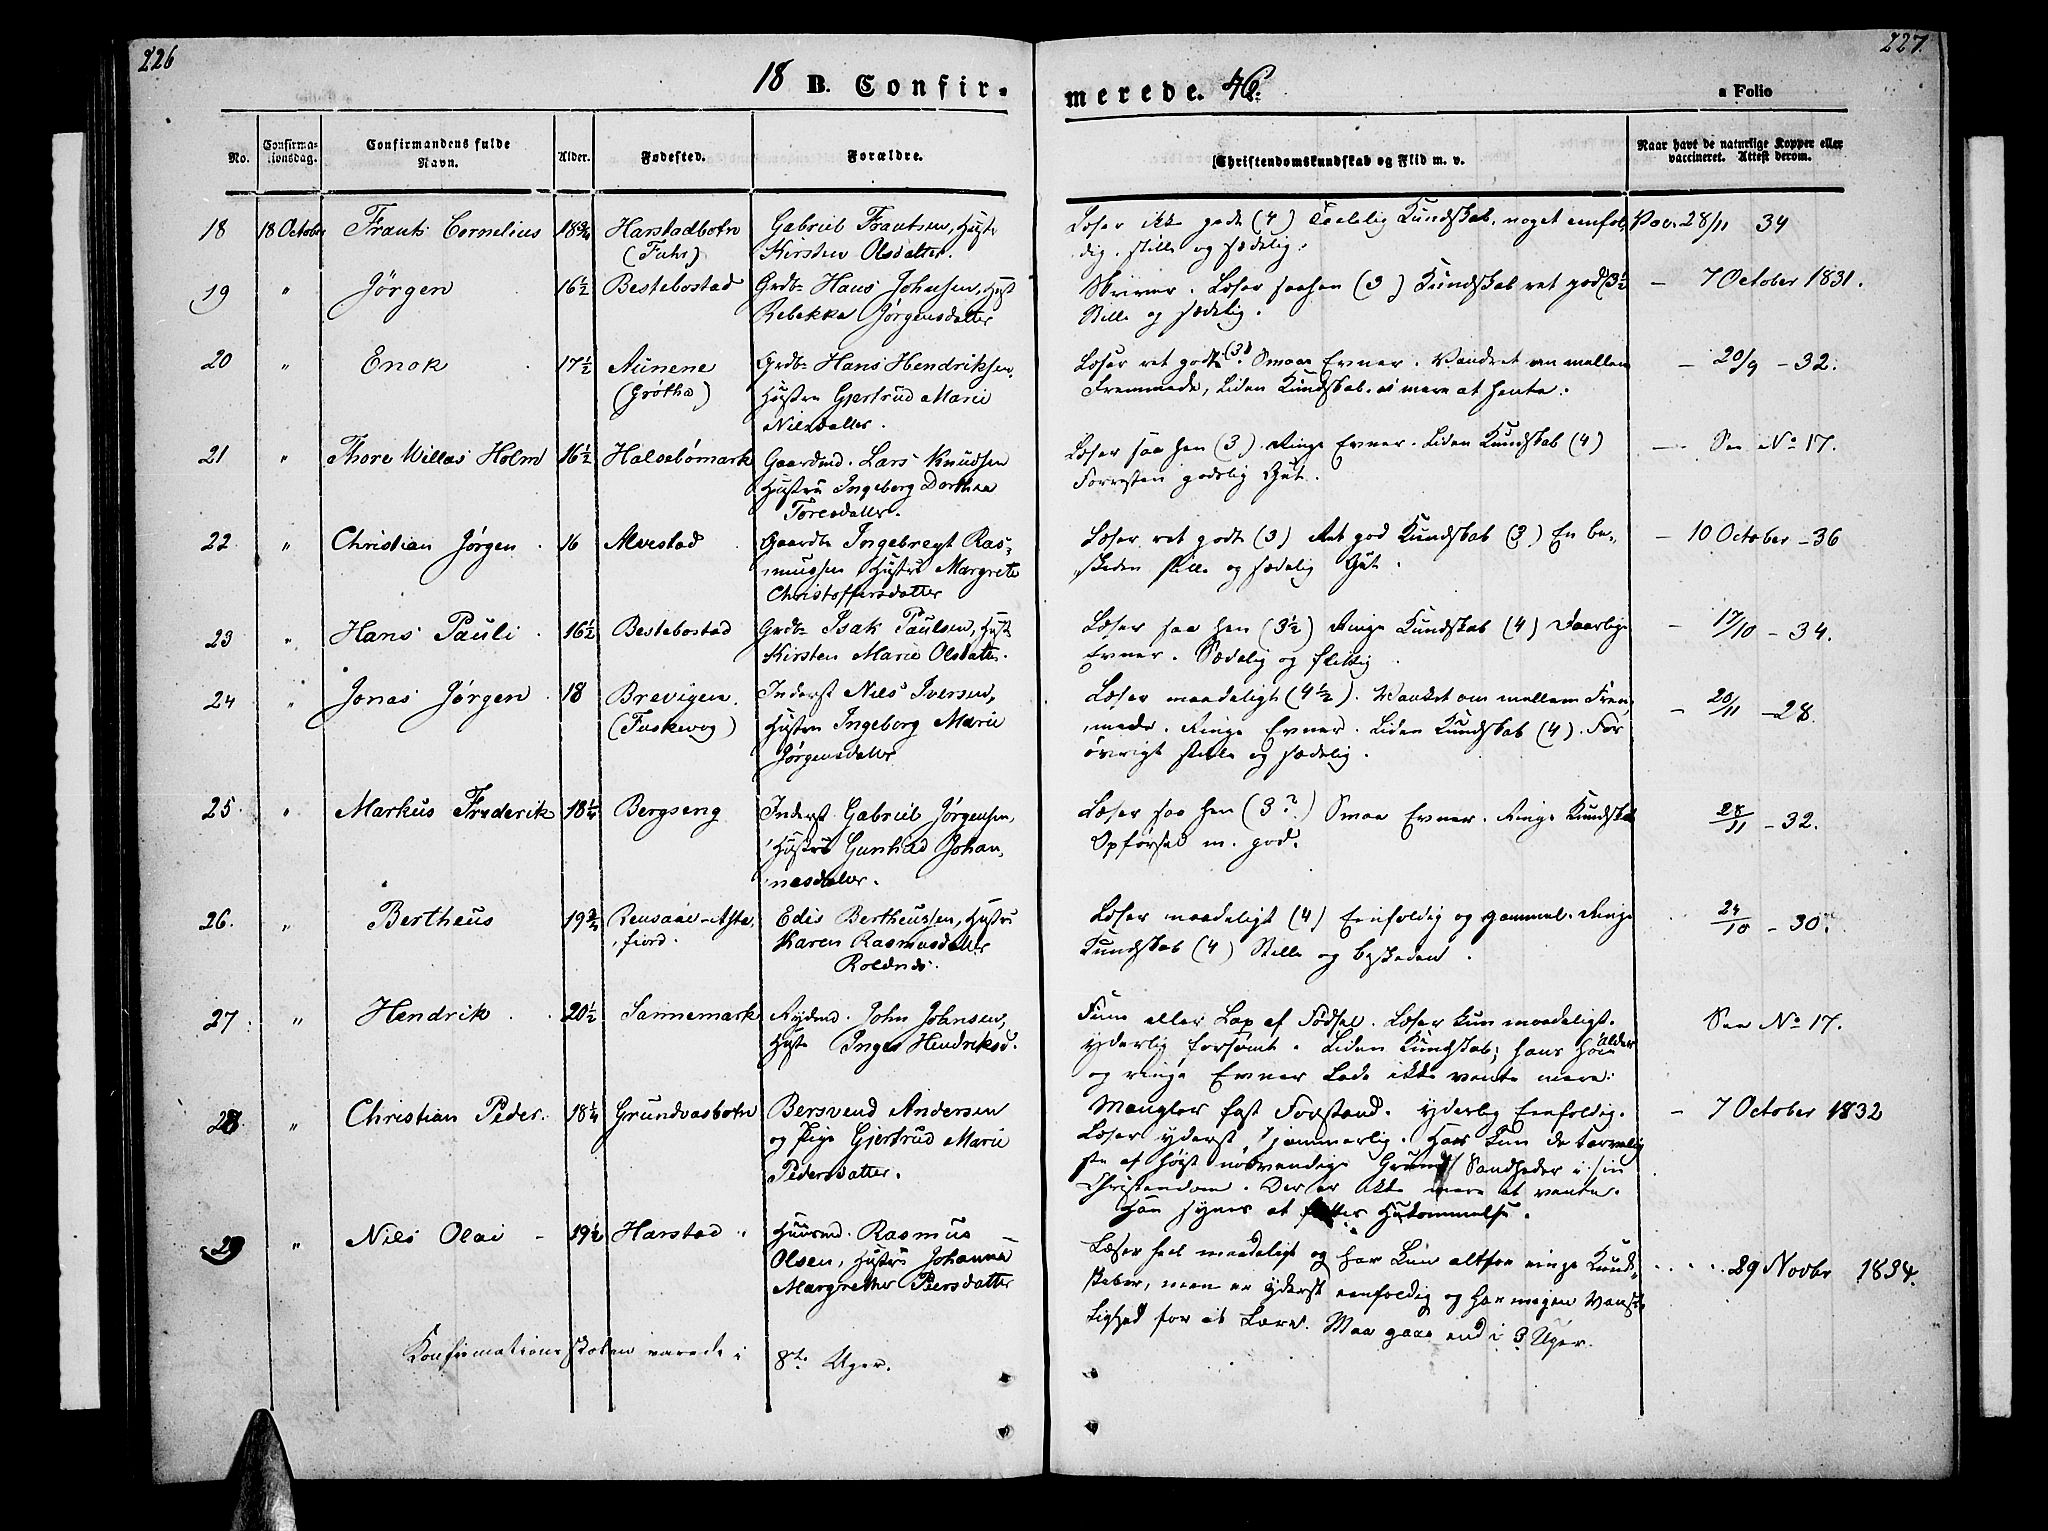 226
227.
18 B. Confir-
merede. 46.
a Folio
No.
Confirma-
tionsdag.
Confirmandens fulde
Navn.
Alder.
Fødested.
Forældre.
Christendomskundskab og Flid m. v.
Naar havt de naturlige Kopper eller
vaccineret. Attest derom.
18 18 October Frants Cornelius 18 3/4 Harstadbotn Gabriel Frantsen, Hustr
(Fuhr) Kirsten Olsdatter.
Læser ikke godt (4) Taalelig Kundskab, noget eenfol, Vac. 28/11 34
dig. stille og sædelig.
19 " Jørgen 16½ Bestebostad Grdb. Hans Johnsen, Hust
Rebekka Jørgensdatter
Skriver. Læser saahen (3) Kundskab ret god (3½ — 7 October 1831.
Stille og sædelig.
20 " Enok 17½ Aunene Grdb. Hans Hendriksen.
(Grøtha) Hustru Gjertrud Marie
Nilsdatter.
Læser ret godt (3). Smaa Evner. Vandret om mellem — 20/9 - 32.
Fremmede, Liden Kundskab. ei mere at hente.
21 " Thore Willas Holm 16½ Halsebømark Gaardmd. Lars Knudsen
Hustru Ingeborg Dorthea
Toresdatter.
Læser saa hen (3). Ringe Evner. Liden Kundskab (4) — See No 17.
Forresten godslig Gut.
22 " Christian Jørgen 16 Alvestad Gaardb. Ingebregt Ras-
mussen Hustru Margrete
Christoffersdatter
Læser ret godt (3) Ret god Kundskab (3) En be- — 10 October - 36
skeden stille og sædelig Gut.
23 " Hans Pauli 16½ Bestebostad Grdb. Isak Paulsen, Hust
Kirsten Marie Olsdatter.
Læser saa hen (3½) Ringe Kundskab (4) Daarlige — 17/10 - 34.
Evner. Sædelig og flittig.
24 " Jonas Jørgen 18 Brevigen. Inderst Nils Iversen,
(Fuskevog) Hustru Ingeborg Marie
Jørgensdatter
Læser maadeligt (4½). Vanket om mellem Frem- — 20/11 - 28.
mede. Ringe Evner. Liden Kundskab (4). For
øvrigt stille og sædelig.
25 " Markus Frederik 18¼ Bergseng Inderst Gabriel Jørgensen,
Hustru Gunhild Johan-
nesdatter.
Læser saa hen (3?) Smaa Evner. Ringe Kundskab 28/11 - 32.
Opførsel m. god.
26. " Bertheus 19¾ Rensaae-Asta- Edis Bertheussen, Hustru
fiord. Karen Rasmusdatter
Roldnæs.
Læser maadeligt (4) Eenfoldig og gammel. Ringe 24/10 - 30.
Kundskab (4) Stille og beskeden.
27. " Hendrik 20½ Sannemark Rydmd. John Johnsen,
Hustr Inger Hendriksd.
Finn eller Lap af Fødsel. Læser kun maadeligt. See No 17.
yderlig forsømt. Liden Kundskab; hans høie Alder
og ringe Evner Lade ikke vente mere.
28 " Christian Peder. 18¼ Grundvasbotn Bersvend Andersen
og Pige Gjertrud Marie
Pedersdatter.
Mangler fast Forstand. yderlig Eenfoldig. — 7 October 1832
Læser yderst jammerlig. Har kun de tarvelig
ste af høist nødvendige Grund Sandheder i sin
Christendom. Der er ikke mere at vente.
Han synes at Hukommelse.
29 " Nils Olai 19½ Harstad Huusmd. Rasmus
Olsen, Hustru Johanna
Margrethe Piersdatter
Læser heel maadeligt og har kun altfor ringe Kund- 29 Novbr 1834.
skaber, men er yderst eenfoldig og har megen Vanske
lighed for at Lære. Maa gaae end i 3 Uger.
Konfirmationsskolen varede i 8te Uger.